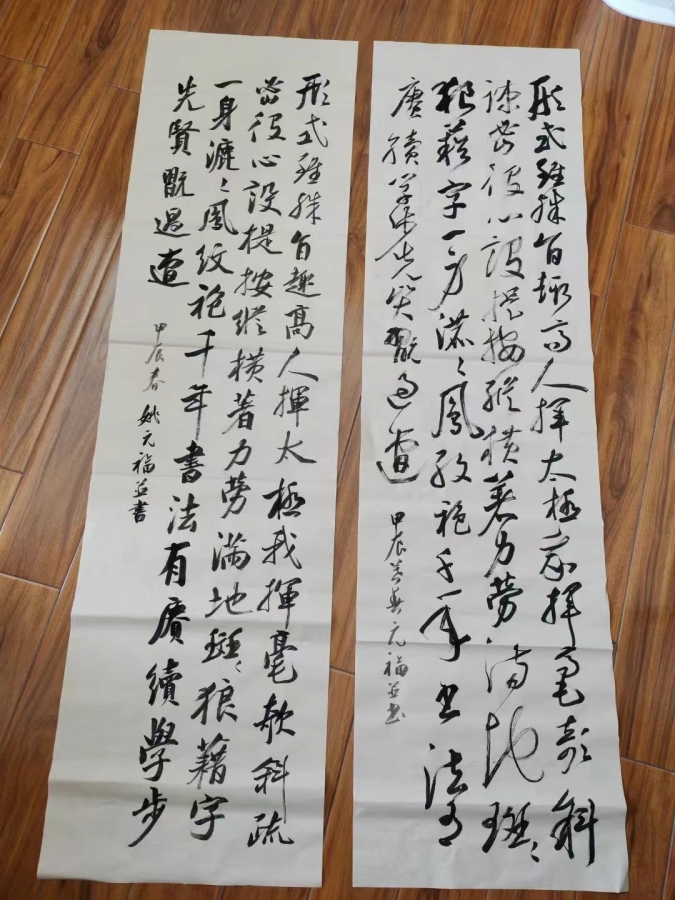 形式雖殊自趣高人揮太極我揮毫欹斜
疎密從心設提按縱橫著力勞滿地斑〻
狼藉字一身漉〻鳳紋袍千年書法有
賡續學步先賢翫過遭
甲辰暮春元福並書
形式雖殊自趣高人揮太極我揮毫欹斜疏
密從心設提按縱橫著力勞滿地斑〻狼藉字
一身漉〻鳳紋袍千年書法有賡續學步
先賢翫過遭
甲辰春姚元福並書